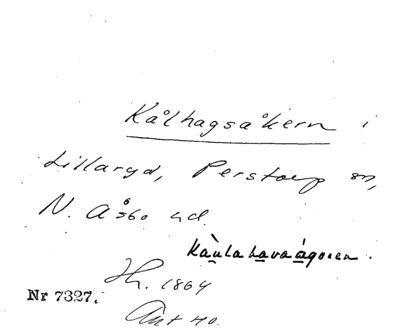 Kålhagsåkern i
Lillaryd, Perstorp sn,
N. Åsbo hd.
kàulahavaágoren.
H. 1864
Nr 7327.
Ant Ho.